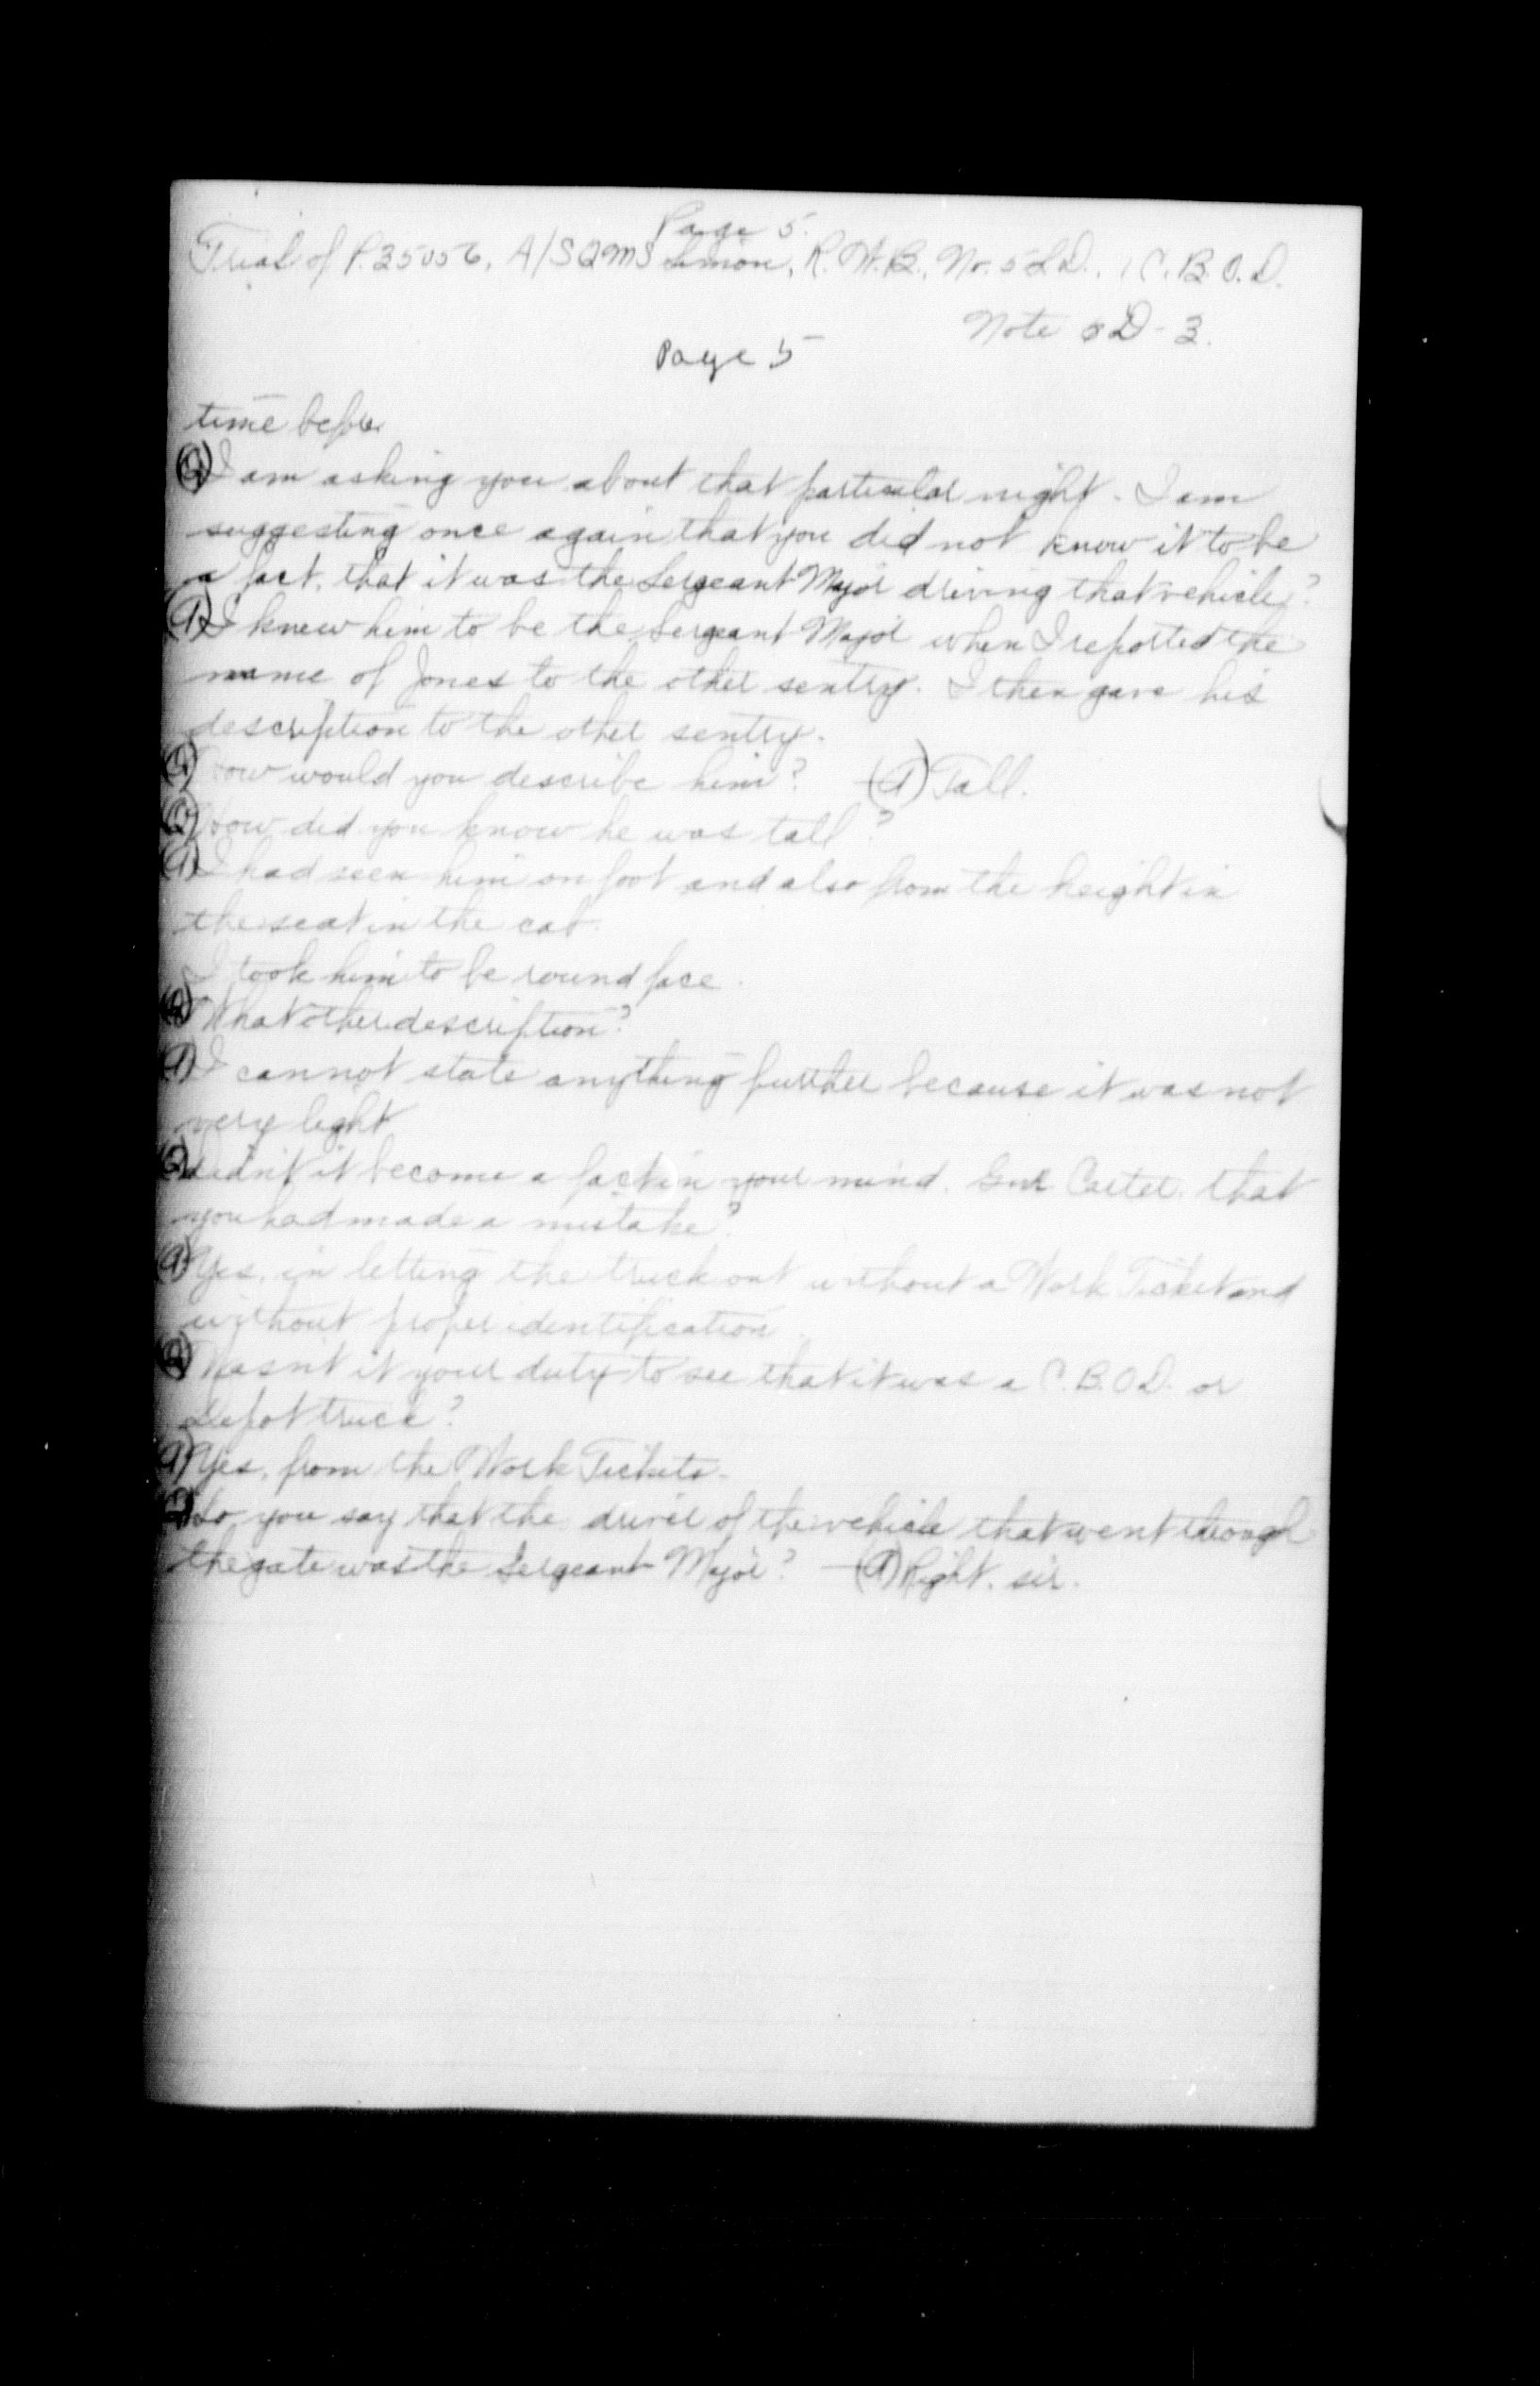 Page 5.
Trial of P.35056, A/SQMS Simon, R.W.B., No. 5 L.D., 1 C.B.O.D.
Note 5D-3.
Page 5
time before
(Q) I am asking you about that particular night. I am
suggesting once again that you did not know it to be
a fact, that it was the Sergeant-Major driving that vehicle?
(A) I knew him to be the Sergeant Major when I reported the
name of Jones to the other sentry. I then gave his
description to the other sentry.
(Q) How would you describe him? (A) Tall.
(Q) How did you know he was tall?
(A) I had seen him on foot and also from the height in
the seat in the cab.
I took him to be round face.
(Q) What other description?
(A) I cannot state anything further because it was not
very light
(Q) Didn't it become a fact in your mind, Gnr. Carter, that
you had made a mistake?
(A) Yes, in letting the truck out without a Work Ticket and
without proper identification.
(Q) Wasn't it your duty to see that it was a C.B.O.D. or
Depot truck?
(A) Yes, from the Work Tickets.
(Q) So you say that the driver of the vehicle that went through
the gate was the Sergeant-Major? (A) Right, sir.